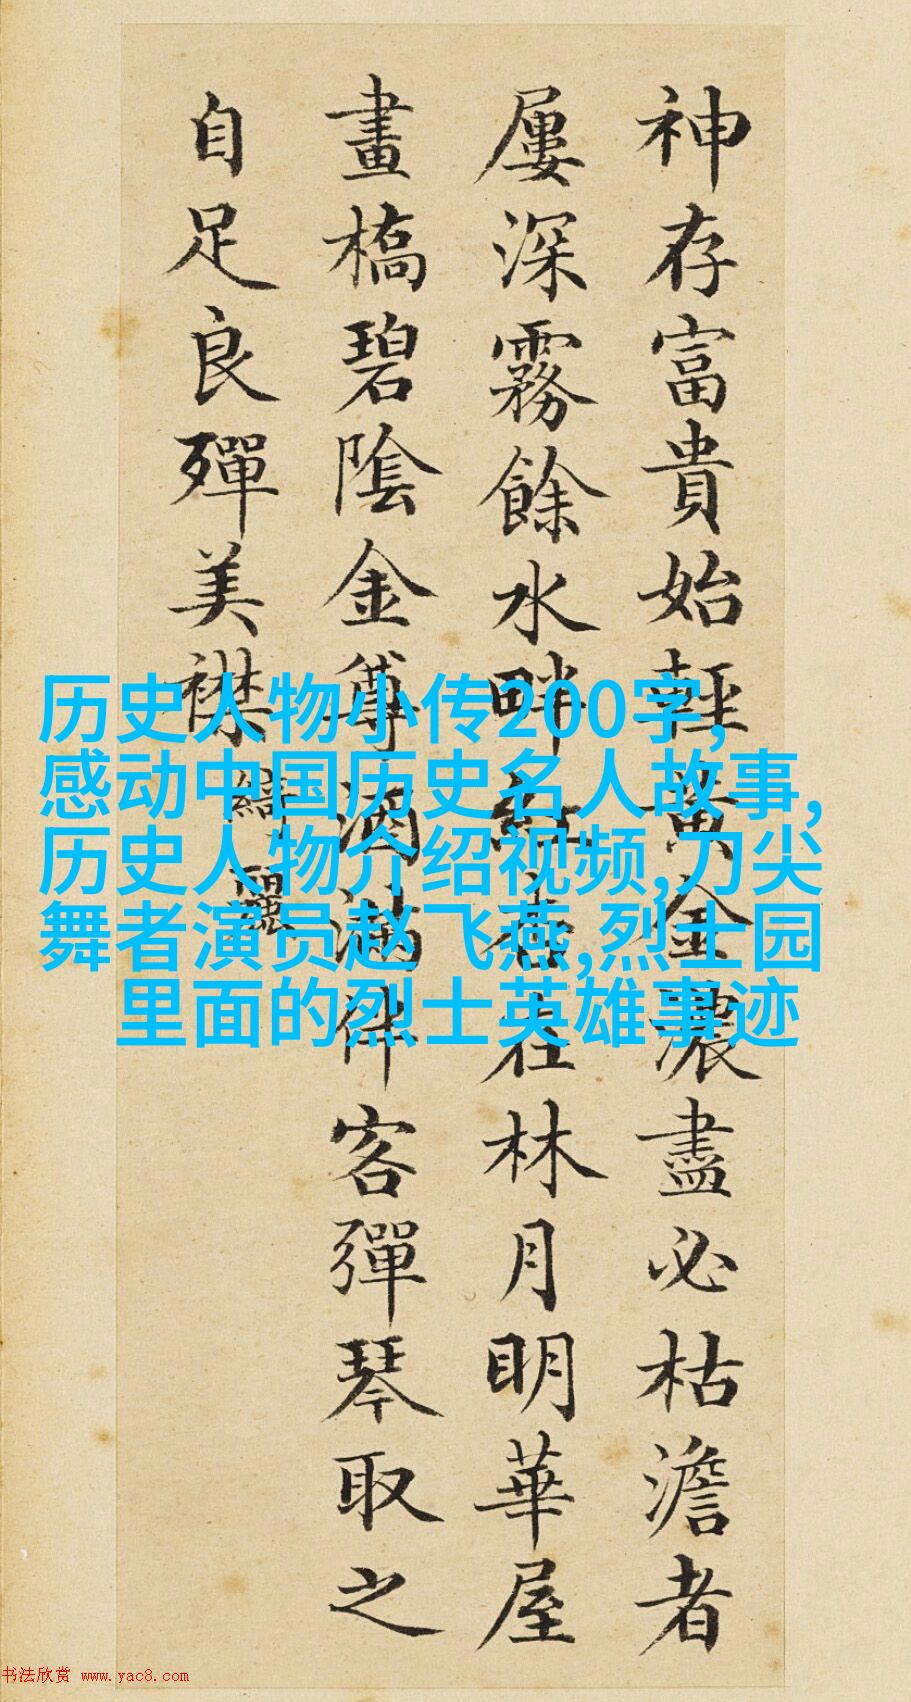 神存富貴始輕黃金濃盡必枯澹者
屢深霧餘水畔紅杏在林月明華屋
畫橋碧陰金尊酒滿伴客彈琴取之
自足良殫美襟
綺麗
历史人物小传200字,
感动中国历史名人故事,
历史人物介绍视频,刀尖
舞者演员赵飞燕,烈士园
里面的烈士英雄事迹
书法欣赏 www.yac8.com